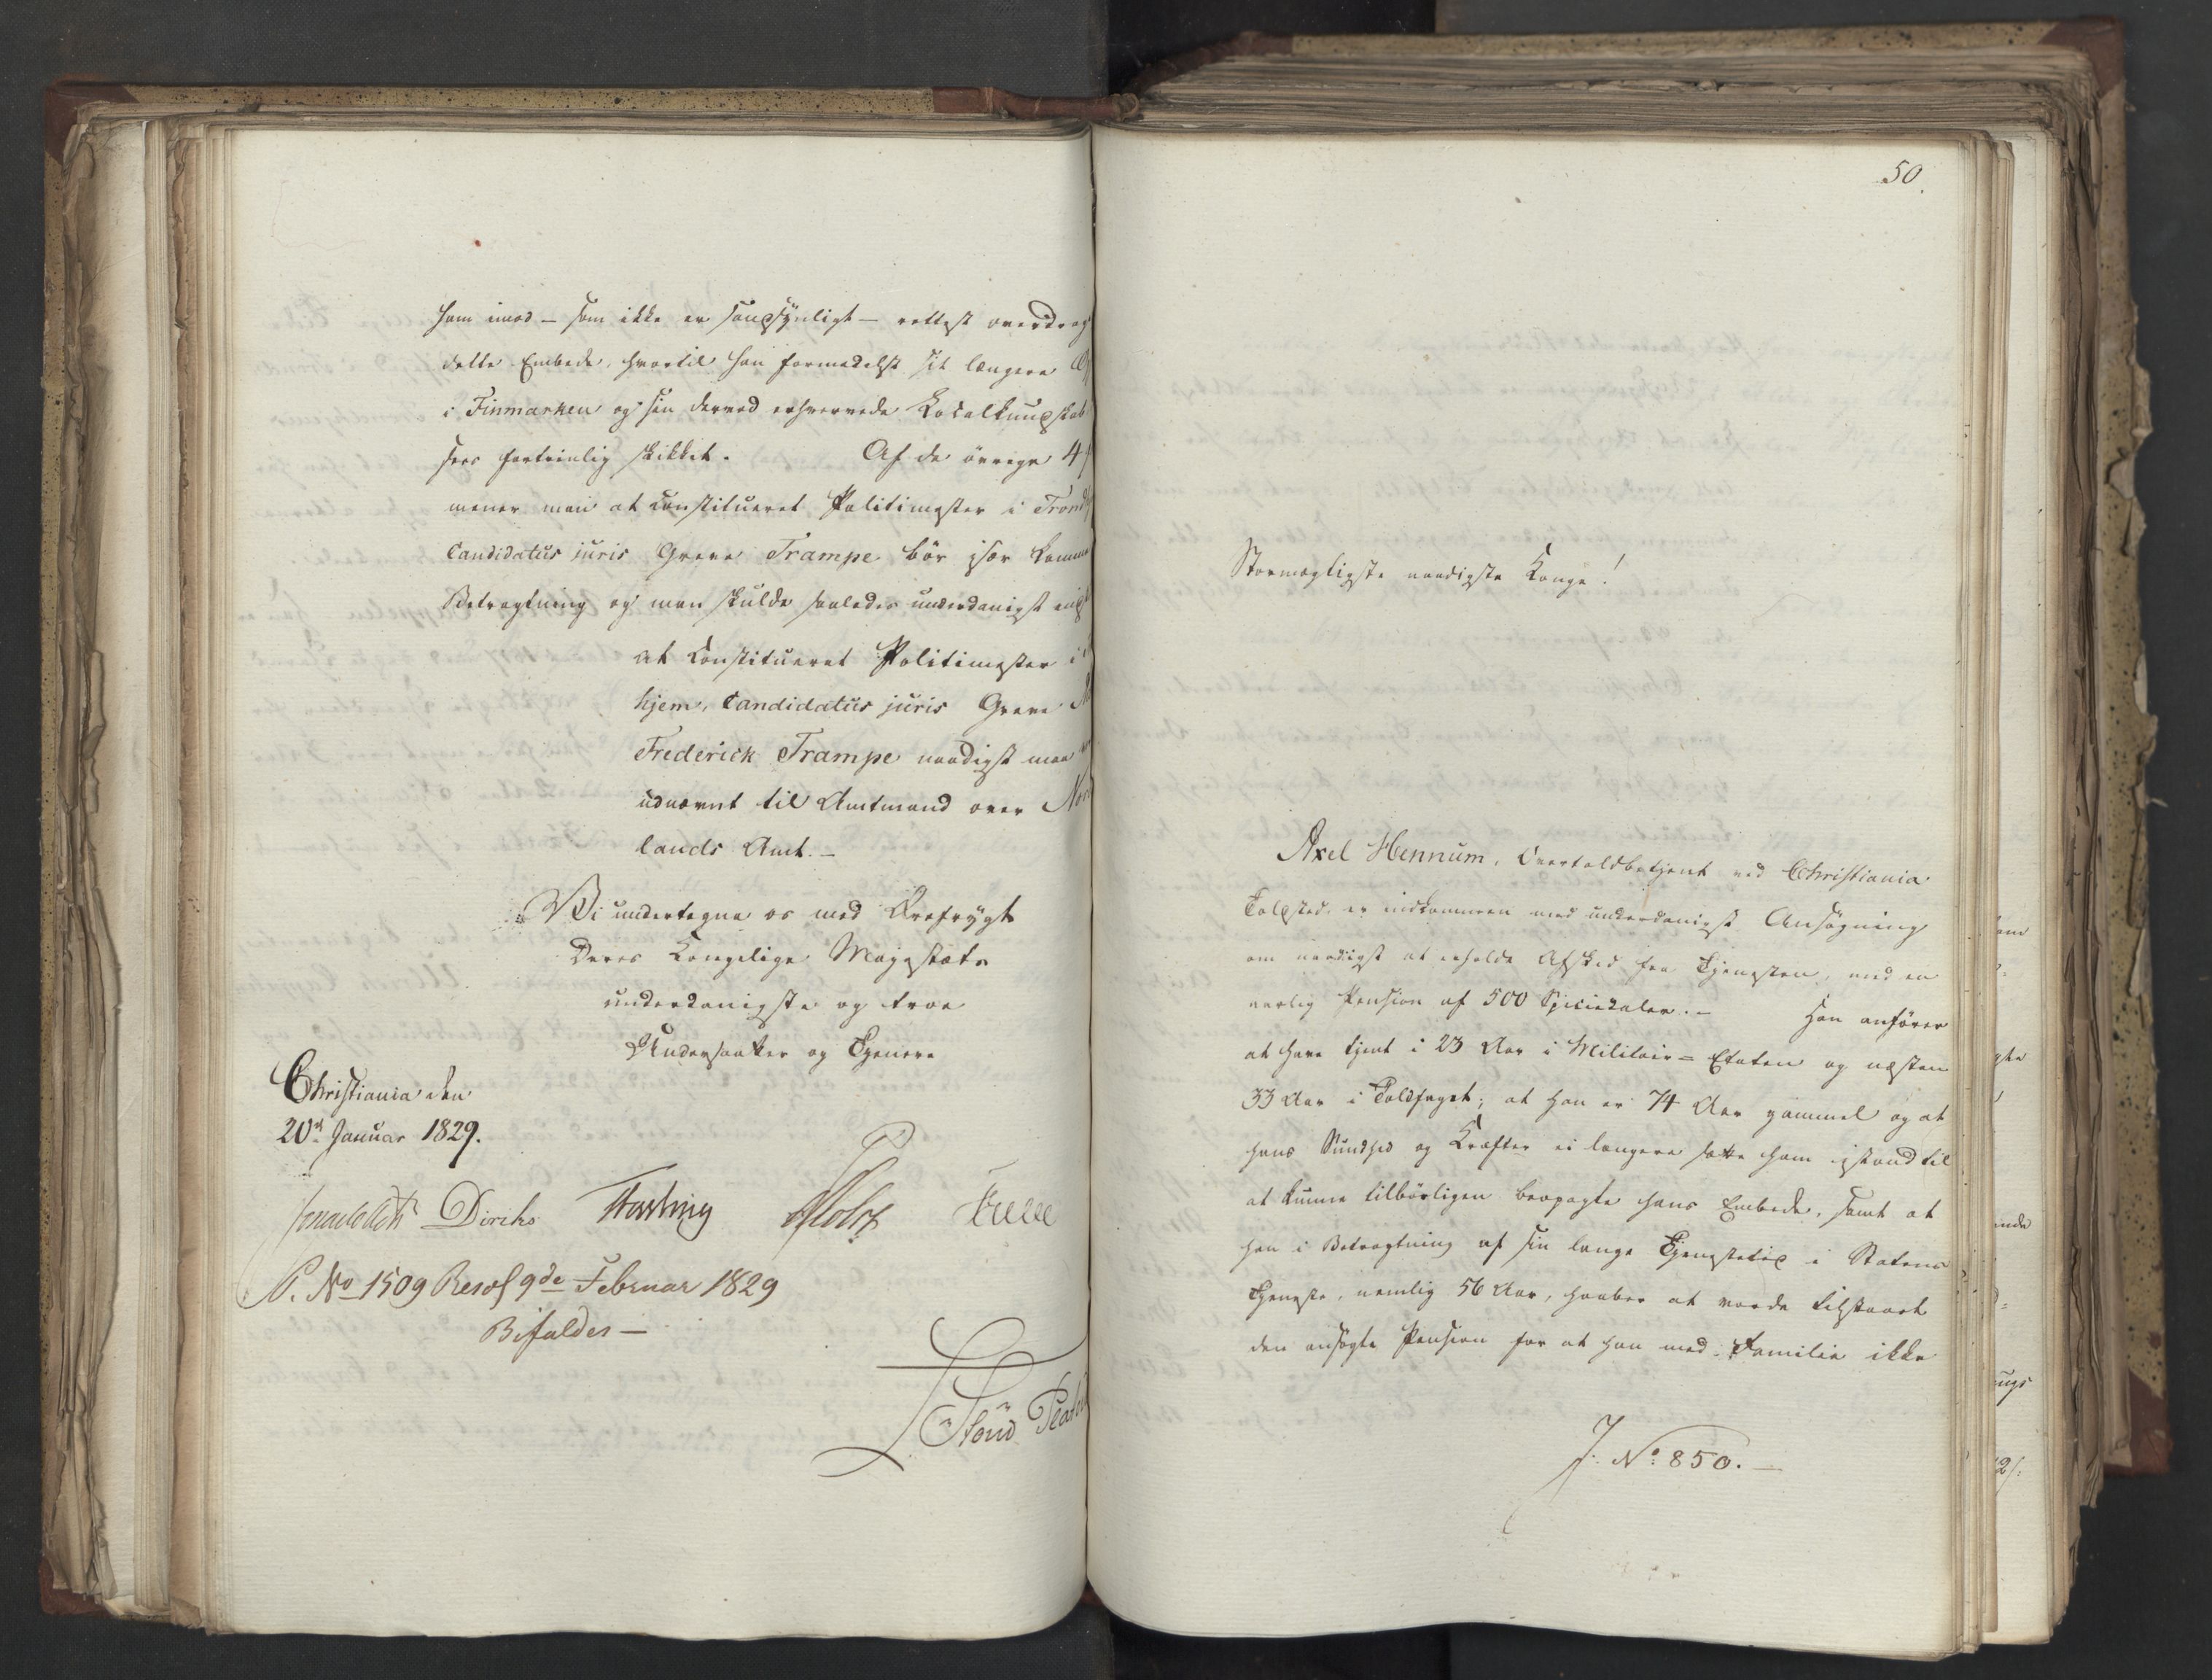 ham imod – som ikke er sandsynligt – rettest overdrag
dette Embede, hvortil han formedelst sit længere
i Finmarken og sin derved erhvervede Localkundskab
sees fortrinlig skikket. Af de övrige 4
mener man at constitueret Politimester i Trond
Candidatus juris Greve Trampe bör især komme
Betragtning og man skulde saaledes underdanigst
at Constitueret Politimester i
hjem, Candidatus juris Greve
Frederick Trampe naadigst maa
udnævnt til Amtmand over Nor
lands Amt. –
Vi undertegne os med Ærefrygt
Deres Kongelige Majestæts
underdanigste og troe
Undersaatter og Tjenere
Christiania den
20d Januar 1829.
Diriks Motzf
P. No 1509 Resol 9de Februar 1829
Bifaldes –
50.
Stormægtigste naadigste Konge!
Axel Hennum, Overtoldbetjent ved Christiania
Toldsted, er indkommen med underdanigst Ansögning
om naadigst at erholde Afsked fra Tjenesten, med en
aarlig Pension af 500 Speciedaler. – Han anförer
at have tjent i 23 Aar i Militair-Etaten og næsten
33 Aar i Toldfaget; at han er 74 Aar gammel og at
hans Sundhed og Kræfter ei længere sætte ham istand til
at kunne tilbörligen varetage hans Embede, samt at
han i Betragtning af sin lange Tjenestetid i Statens
Tjeneste, nemlig 56 Aar, haaber at vorde tilstaaet
den ansögte Pension for at han med Familie ikke
J. No: 850. –